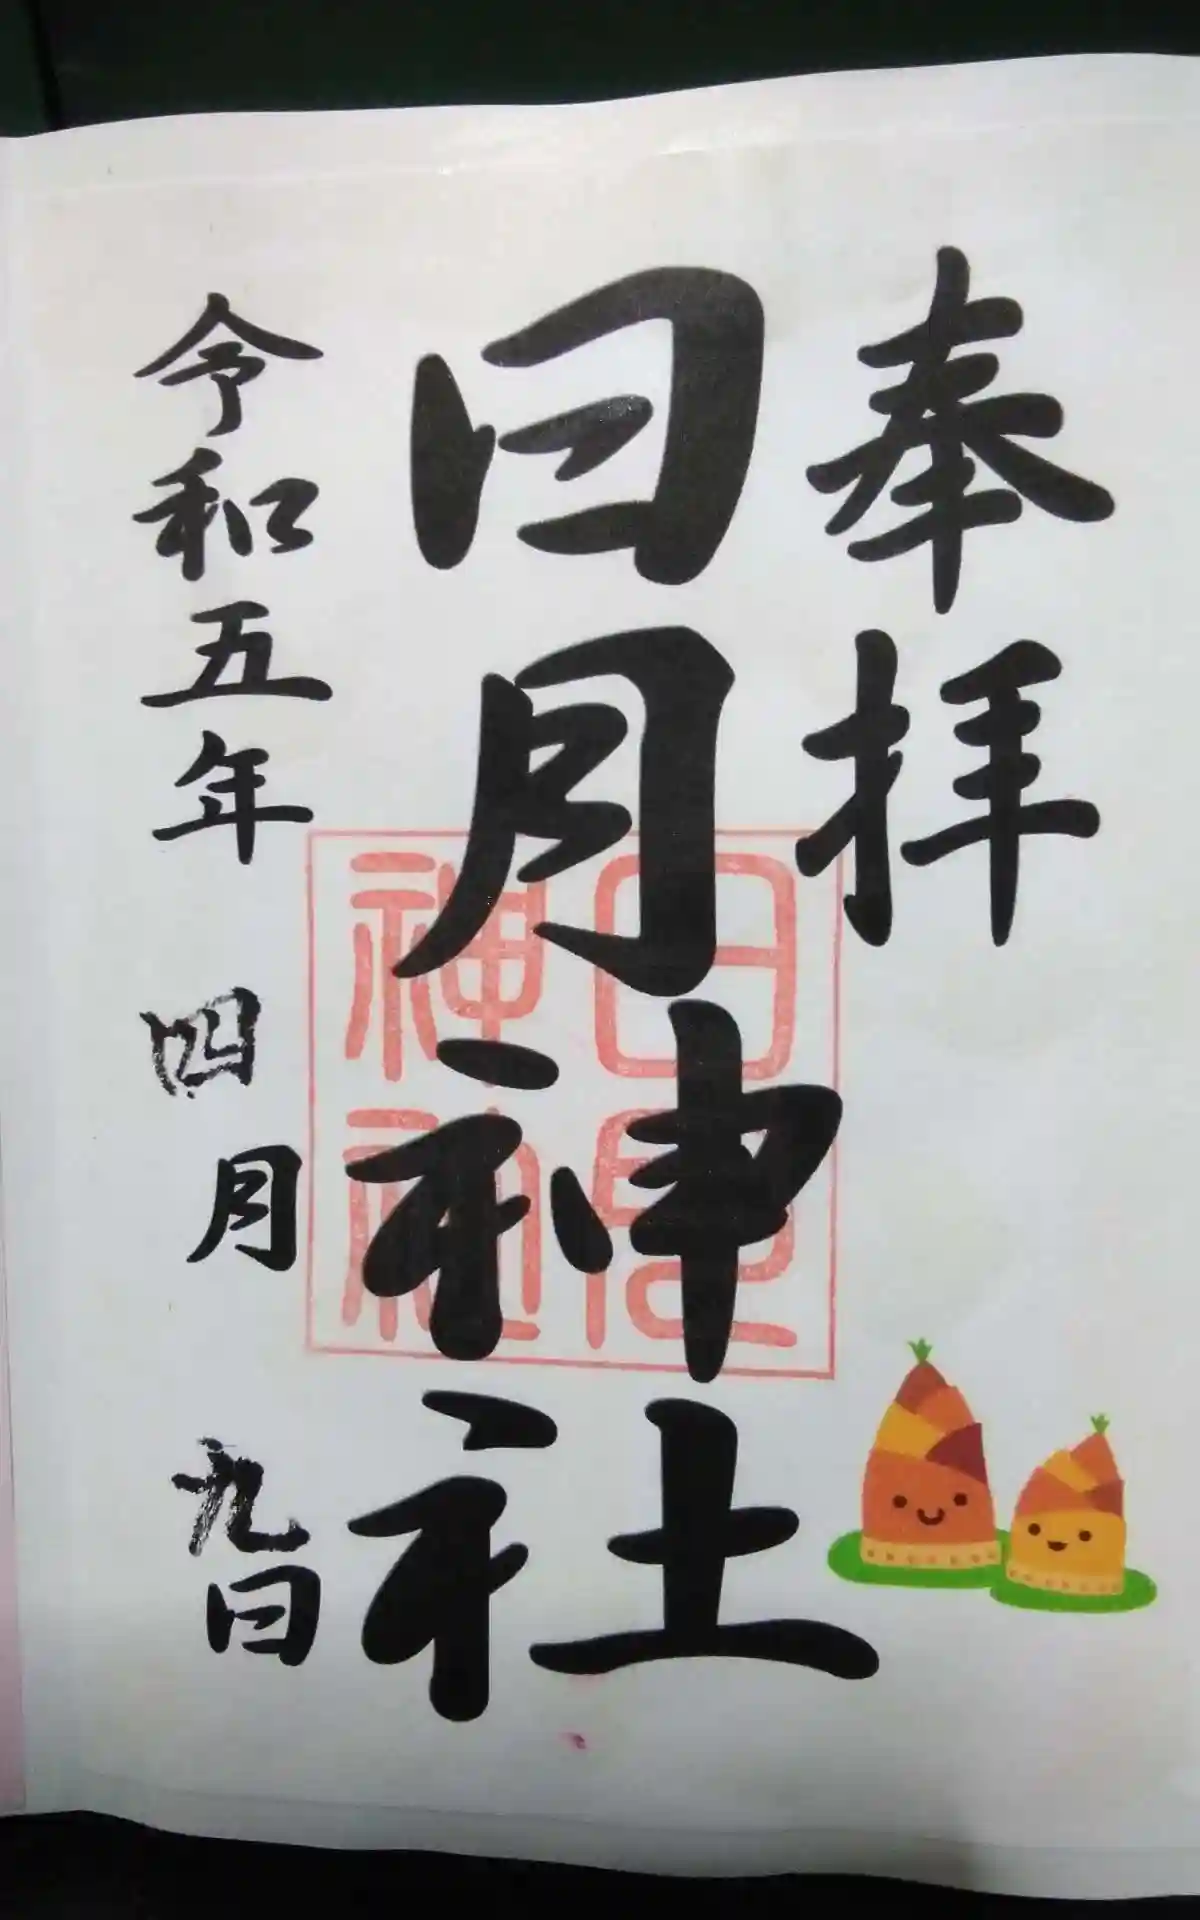 奉拝
日月神社
日月神社
令和五年四月九日